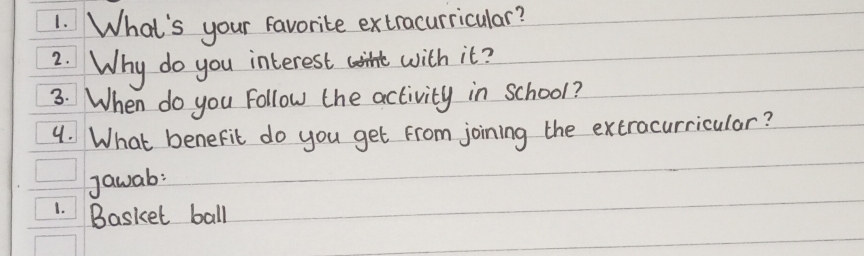 1. What's your favorite extracurricular?
2. Why do you interest with it?
3. When do you follow the activity in school?
4. What benefit do you get from joining the extracurricular?
Jawab:
1. Basket ball